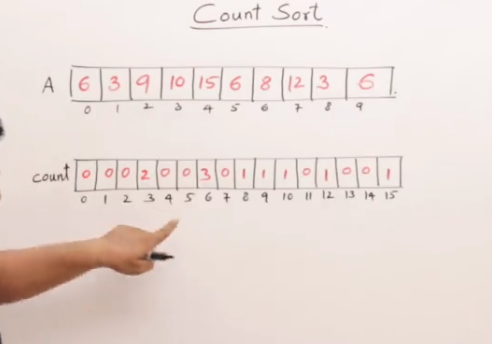 Count Sort
A 6 3 9 10 15 6 8 12 3 6
0 1 2 3 4 5 6 7 8 9
count 0 0 0 2 0 0 3 0 1 1 1 0 1 0 0 1
0 1 2 3 4 5 6 7 8 9 10 11 12 13 14 15